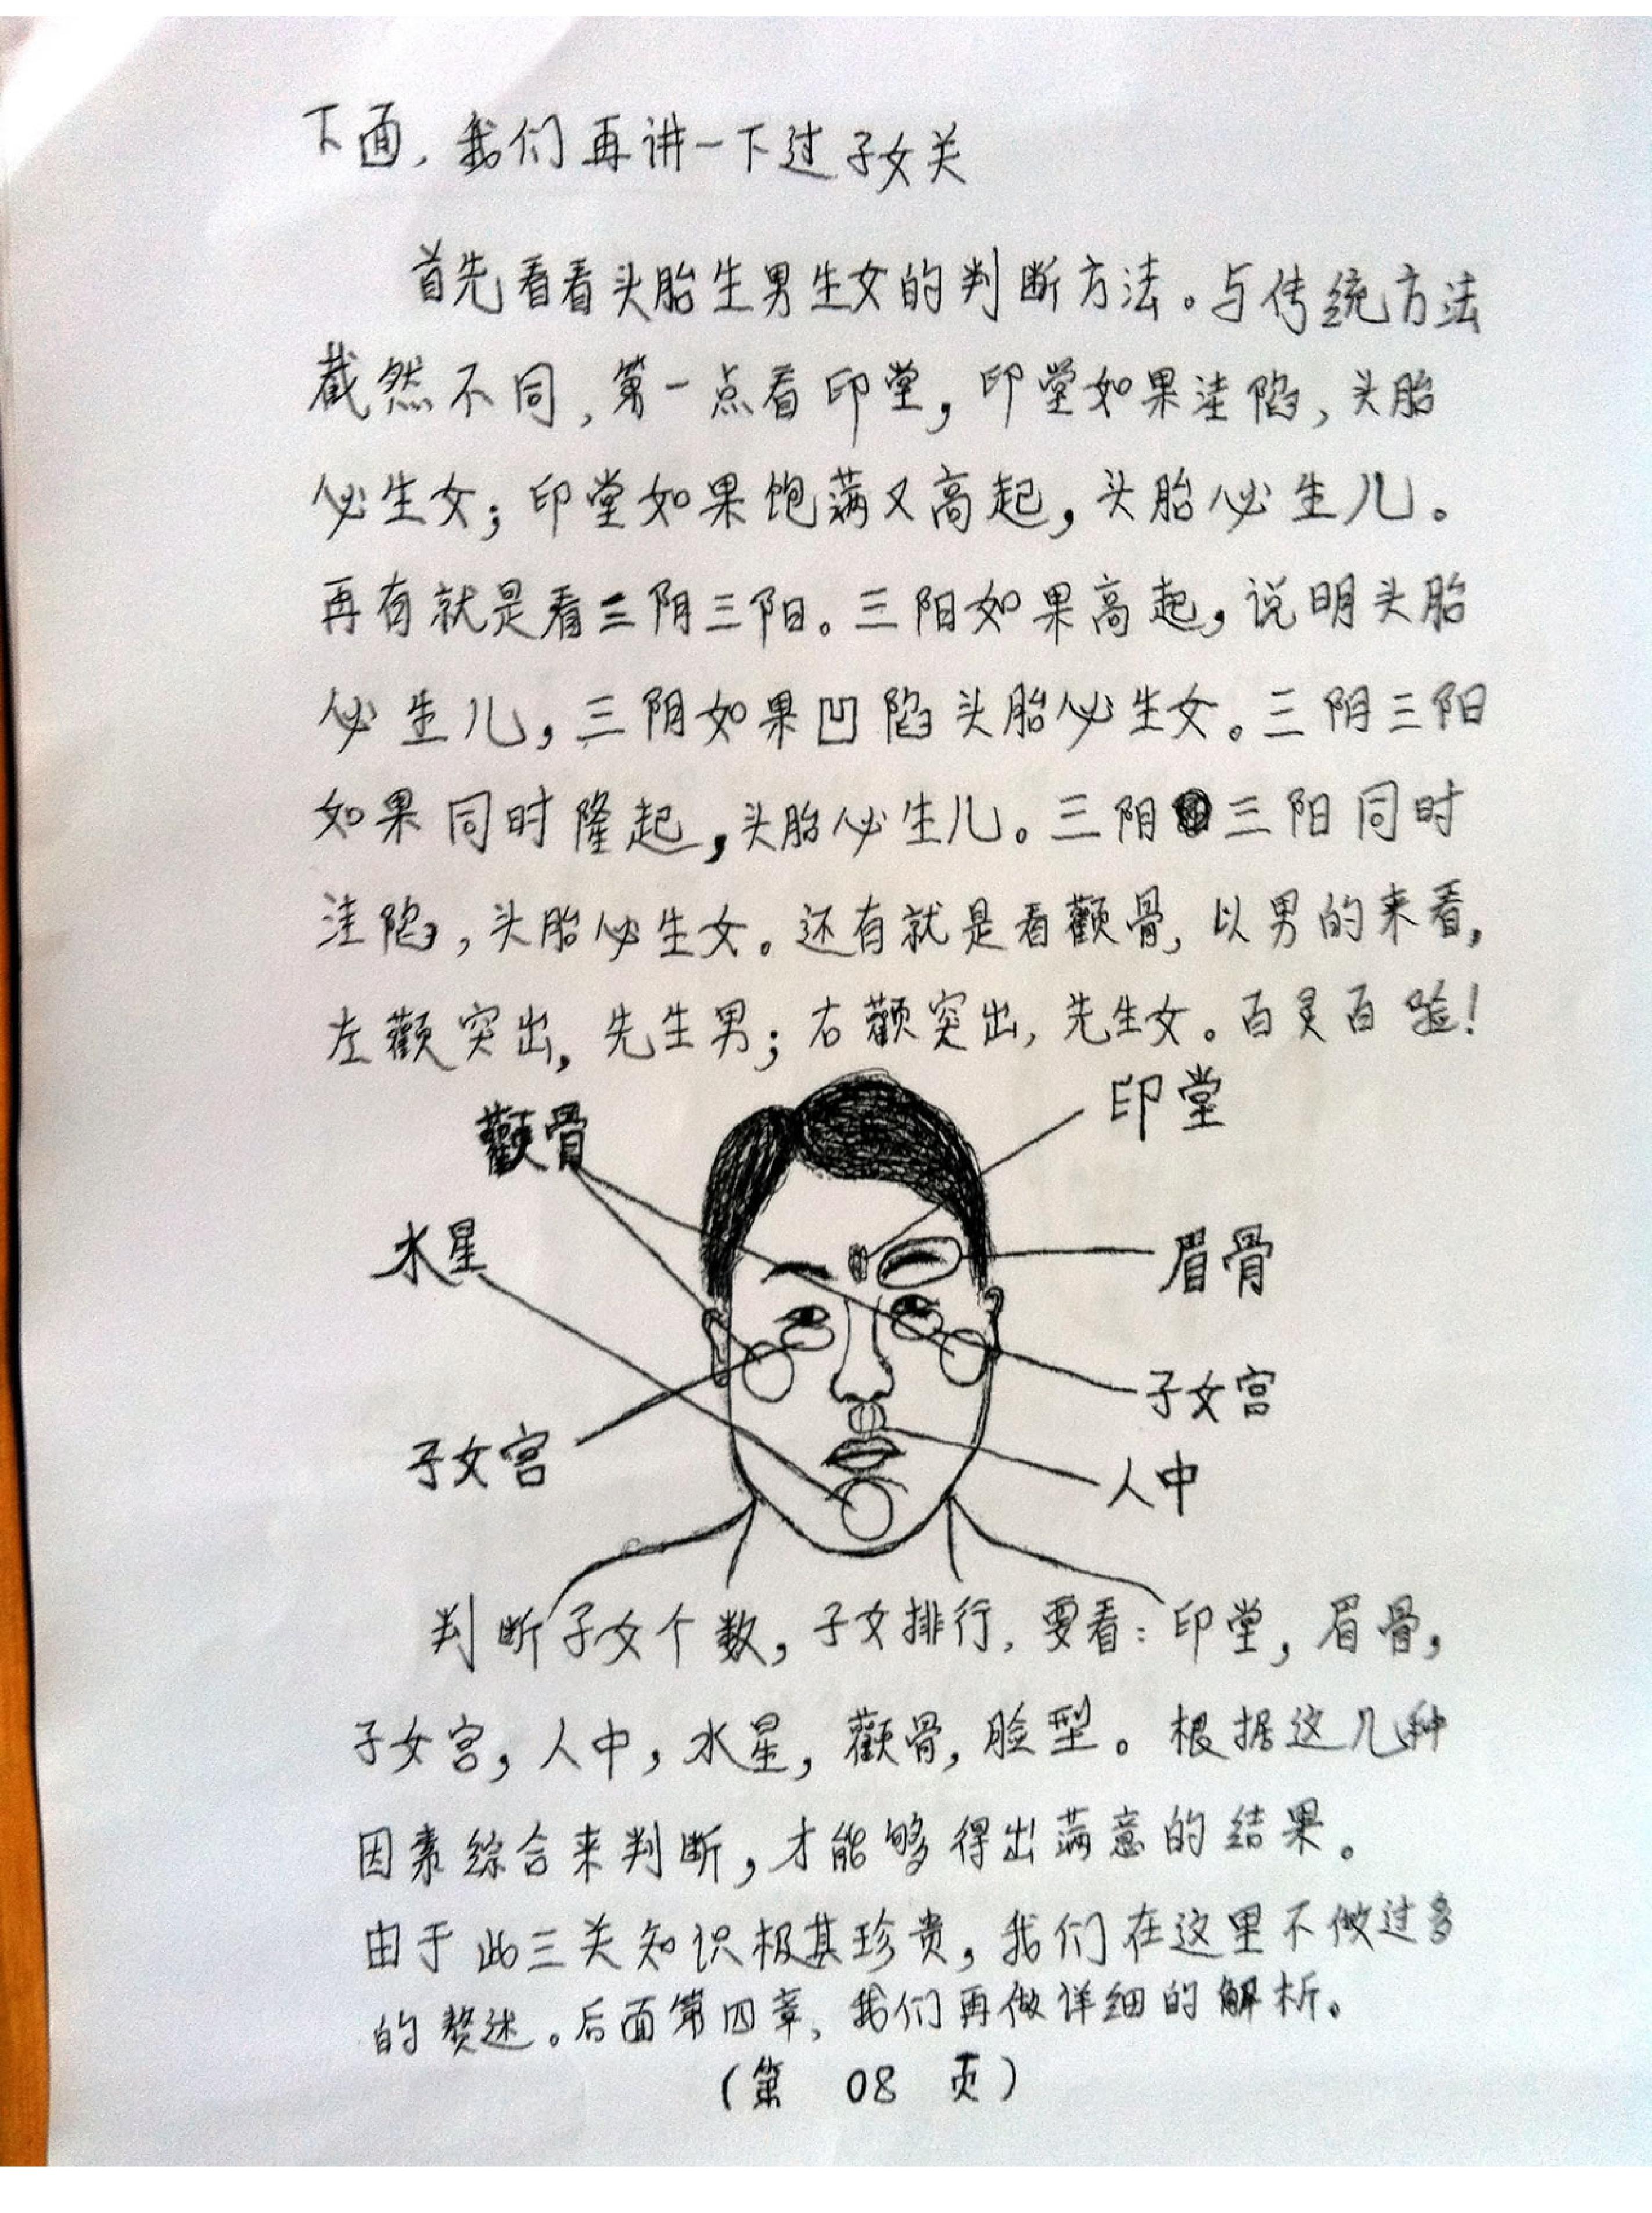 下面，我们再讲一下过子女关
首先看看头胎生男生女的判断方法。与传统方法
截然不同，第一点看印堂，印堂如果洼陷，头胎
必生女；印堂如果饱满又高起，头胎必生儿。
再有就是看三阴三阳。三阳如果高起，说明头胎
必生儿，三阴如果凹陷头胎必生女。三阴三阳
如果同时隆起，头胎必生儿。三阴三阳同时
洼陷，头胎必生女。还有就是看颧骨，以男的来看，
左颧突出，先生男；右颧突出，先生女。百灵百验！
颧骨
印堂
水星
眉骨
子女宫
子女宫
人中
判断子女个数，子女排行，要看：印堂，眉骨，
子女宫，人中，水星，颧骨，脸型。根据这几种
因素综合来判断，才能够得出满意的结果。
由于此三关知识极其珍贵，我们在这里不做过多
的赘述。后面第四章，我们再做详细的解析。
（第 08 页）